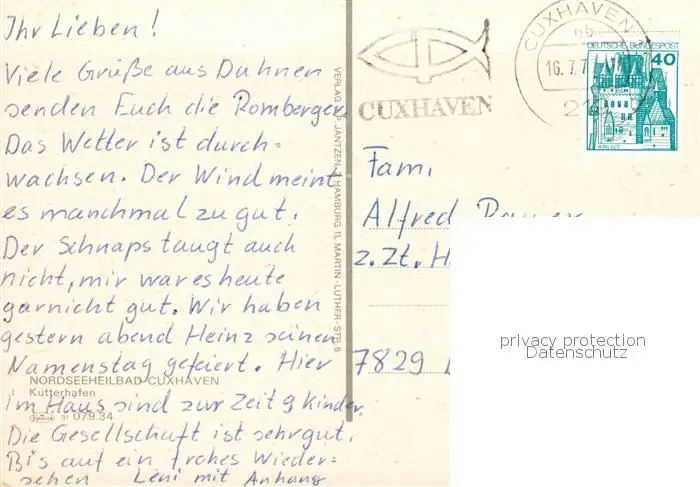 Ihr Lieben!
Viele Grüße aus Duhnen
senden Euch die Romberger.
Das Wetter ist durch-
wachsen. Der Wind meint
es manchmal zu gut.
Der Schnaps taugt auch
nicht, mir war es heute
garnicht gut. Wir haben
gestern abend Heinz seinen
Namenstag gefeiert. Hier
im Haus sind zur Zeit 9 Kinder.
Die Gesellschaft ist sehr gut.
Bis auf ein frohes Wieder-
sehen Leni mit Anhang
NORDSEEHEILBAD CUXHAVEN
Kutterhafen
079.34
JANTZEN, 2 HAMBURG 11, MARTIN-LUTHER-STR. 8
CUXHAVEN
CUXHAVEN
16.7.7
DEUTSCHE BUNDESPOST
40
BURG ELTZ
Fam.
Alfred
z. Zt. H
7829
privacy protection
Datenschutz